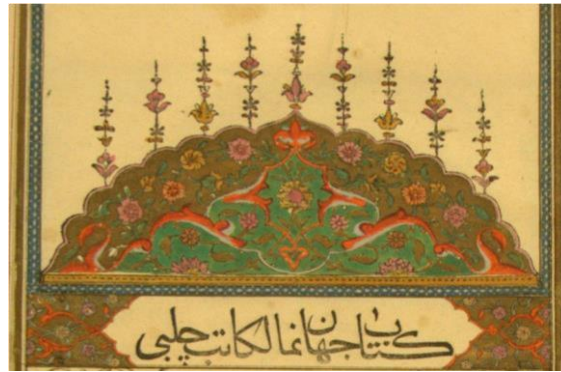 كتاب جهان نما لكاتب چلبي